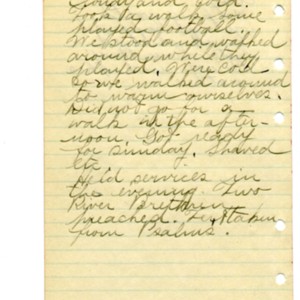 Cloudy and cold.
Took a walk some
played football.
We stood and walked
around while they
played. Were cold
so we walked around
to warm ourselves.
Did not go for a
walk in the after-
noon. Got ready
for sunday. Shaved
etc.
Held services in
the evening. Two
River Brethren
preached. Text taken
from Psalms.